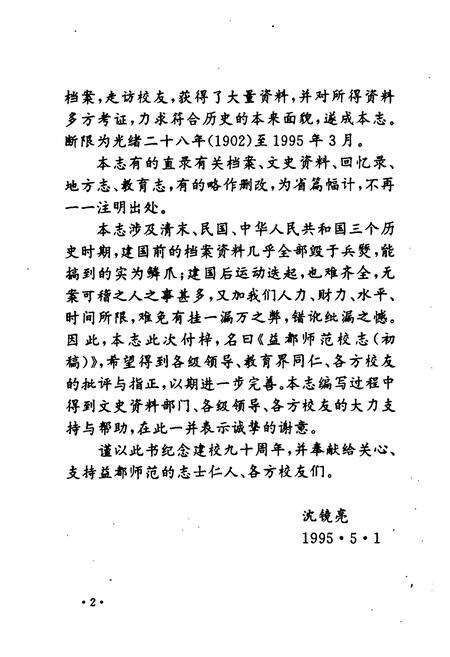 档案,走访校友,获得了大量资料,并对所得资料
多方考证,力求符合历史的本来面貌,遂成本志。
断限为光绪二十八年(1902)至1995年3月。
本志有的直录有关档案、文史资料、回忆录、
地方志、教育志,有的略作删改,为省篇幅计,不再
一一注明出处。
本志涉及清末、民国、中华人民共和国三个历
史时期,建国前的档案资料几乎全部毁于兵燹,能
搞到的实为鳞爪;建国后运动迭起,也难齐全,无
案可稽之人之事甚多,又加我们人力、财力、水平、
时间所限,难免有挂一漏万之弊,错讹纰漏之憾。
因此,本志此次付梓,名曰《益都师范校志(初
稿)》,希望得到各级领导、教育界同仁、各方校友
的批评与指正,以期进一步完善。本志编写过程中
得到文史资料部门、各级领导、各方校友的大力支
持与帮助,在此一并表示诚挚的谢意。
谨以此书纪念建校九十周年,并奉献给关心、
支持益都师范的志士仁人、各方校友们。
沈镜亮
1995·5·1
·2·